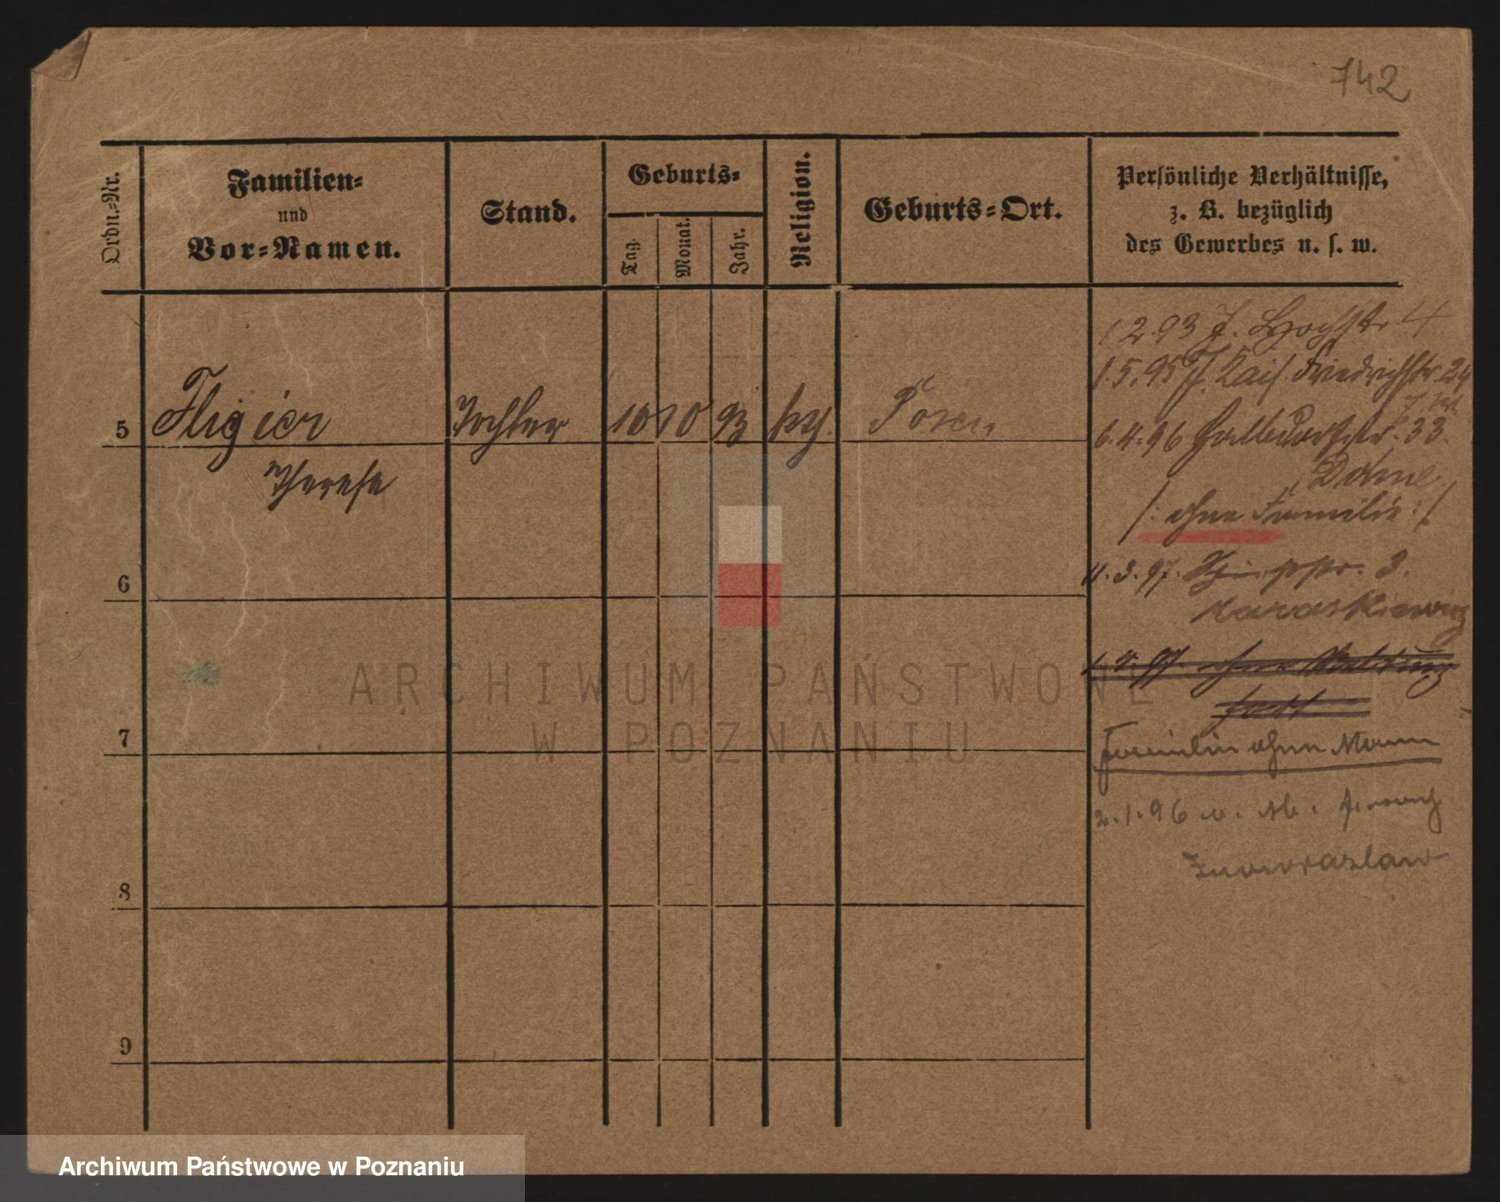 742
Ordn.-Nr.
Familien-
und
Vor-Namen.
Stand.
Geburts-
Tag.
Monat.
Jahr.
Religion.
Geburts-Ort.
Persönliche Verhältnisse,
z. B. bezüglich
des Gewerbes u. s. w.
5
Fligier
Therese
Tochter
10
10
93
kth.
Posen
1 2.93 J. 4
1.5.95 J. Kais. Friedrichstr. 24
6.4.96 Halbdorfstr. 33.
/: ohne Familie :/
4.3.97. 3.
1.4.97. ohne Meldung
fort
Familie ohne Mann
2.1.96
Inowrazlaw
6
7
8
9
ARCHIWUM PAŃSTWOWE
W POZNANIU
Archiwum Państwowe w Poznaniu